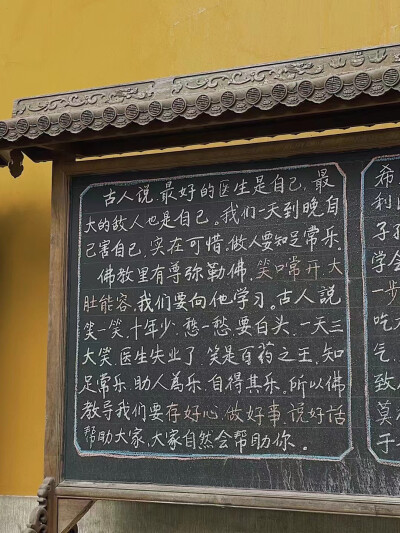 古人说,最好的医生是自己,最
大的敌人也是自己。我们一天到晚自
己害自己,实在可惜,做人要知足常乐.
佛教里有尊弥勒佛,笑口常开,大
肚能容,我们要向他学习。古人说
笑一笑,十年少,愁一愁,要白头,一天三
大笑,医生失业了,笑是百药之王,知
足常乐,助人为乐,自得其乐。所以佛
教导我们要存好心,做好事,说好话
帮助大家,大家自然会帮助你。
希
利
子孙
学会
一步
吃
气
致
莫
于